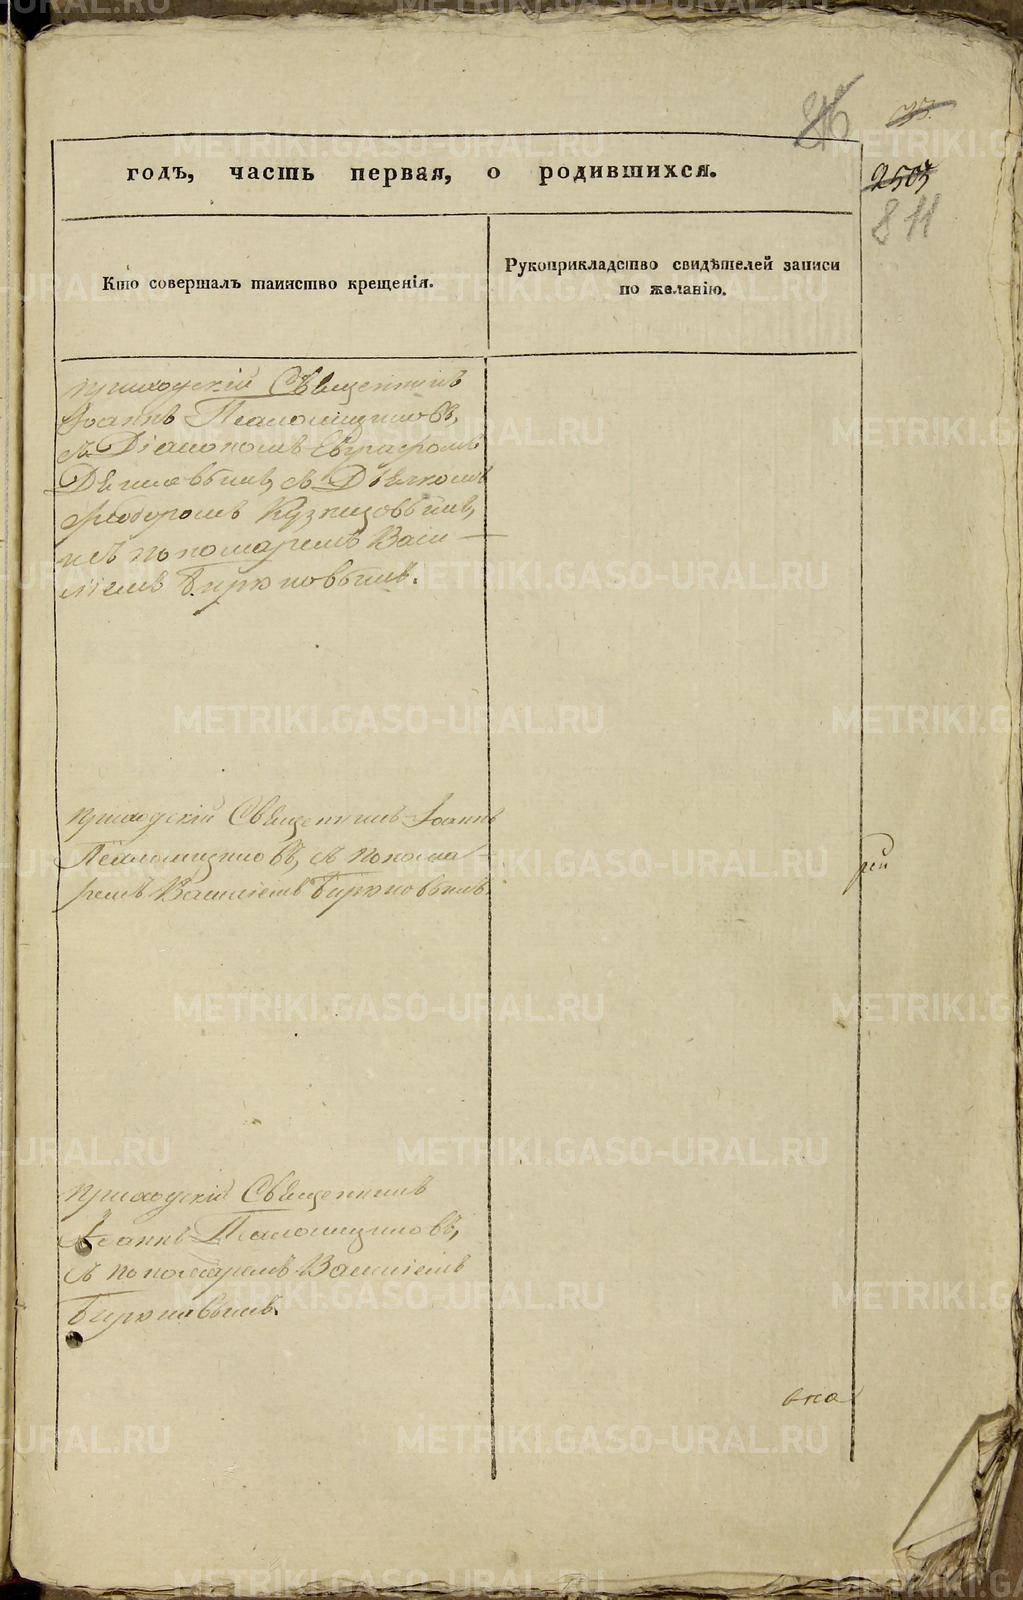 26
2503
811
годъ, часть первая, о родившихся.
Кто совершалъ таинство крещенія.
Рукоприкладство свидѣтелей записи
по желанію.
приходскій Священникъ
Іоаннъ Псаломщиковъ,
съ Діакономъ Евграфомъ
Съ Дьячкомъ
Ѳеодоромъ Кузнецовымъ,
и съ пономаремъ Васи-
ліемъ Бирюковымъ.
приходскій Священникъ Іоаннъ
Псаломщиковъ, съ понома
ремъ Василіемъ Бирюковымъ
рей
приходскій Священникъ
Іоаннъ Псаломщиковъ,
съ пономаремъ Василіемъ
Бирюковымъ.
вна
METRIKI.GASO-URAL.RU